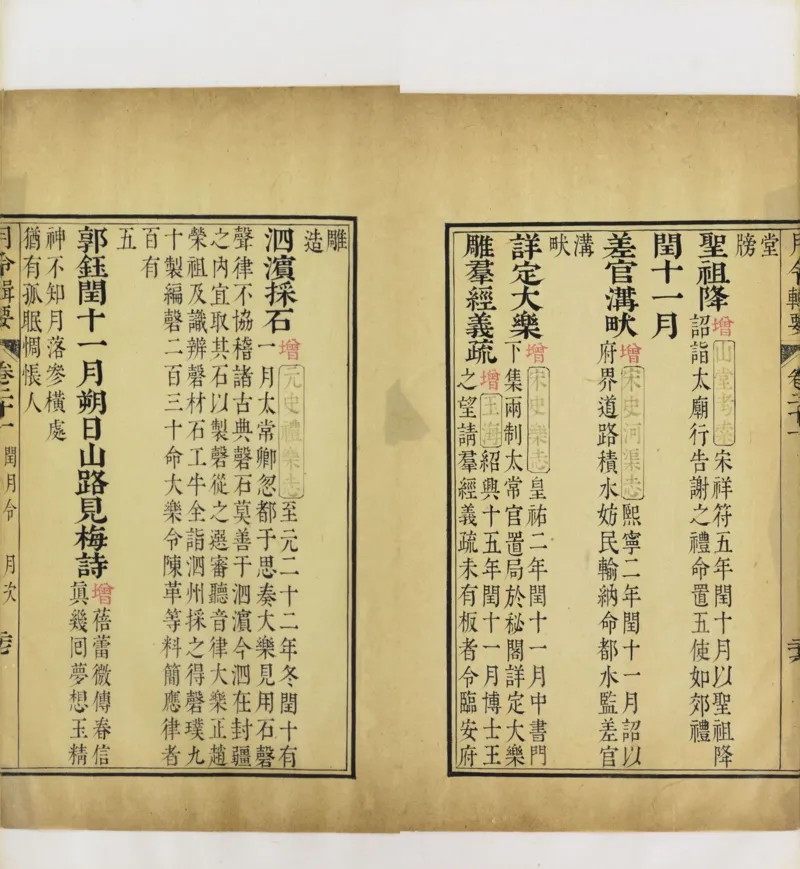 月令輯要 卷二十一
堂
牓
聖祖降 增山堂考索 宋祥符五年閏十月以聖祖降
詔詣太廟行告謝之禮命置五使如郊禮
閏十一月
差官溝畎 增宋史河渠志 熙寧二年閏十一月詔以
府界道路積水妨民輸納命都水監差官
溝
畎
詳定大樂 增宋史樂志 皇祐二年閏十一月中書門
下集兩制太常官置局於秘閣詳定大樂
雕羣經義疏 增玉海 紹興十五年閏十一月博士王
之望請羣經義疏未有板者令臨安府
雕
造
泗濱採石 增元史禮樂志 至元二十二年冬閏十有
一月太常卿忽都于思奏大樂見用石磬
聲律不協稽諸古典磬石莫善于泗濱今泗在封疆
之內宜取其石以製磬從之選審聽音律大樂正趙
榮祖及識辨磬材石工牛全詣泗州採之得磬璞九
十製編磬二百三十命大樂令陳革等料簡應律者
百有
五
郭鈺閏十一月朔日山路見梅詩 增蓓蕾微傳春信
真幾囘夢想玉精
神不知月落參橫處
猶有孤眠惆悵人
月令輯要 卷二十一 閏月令 月次